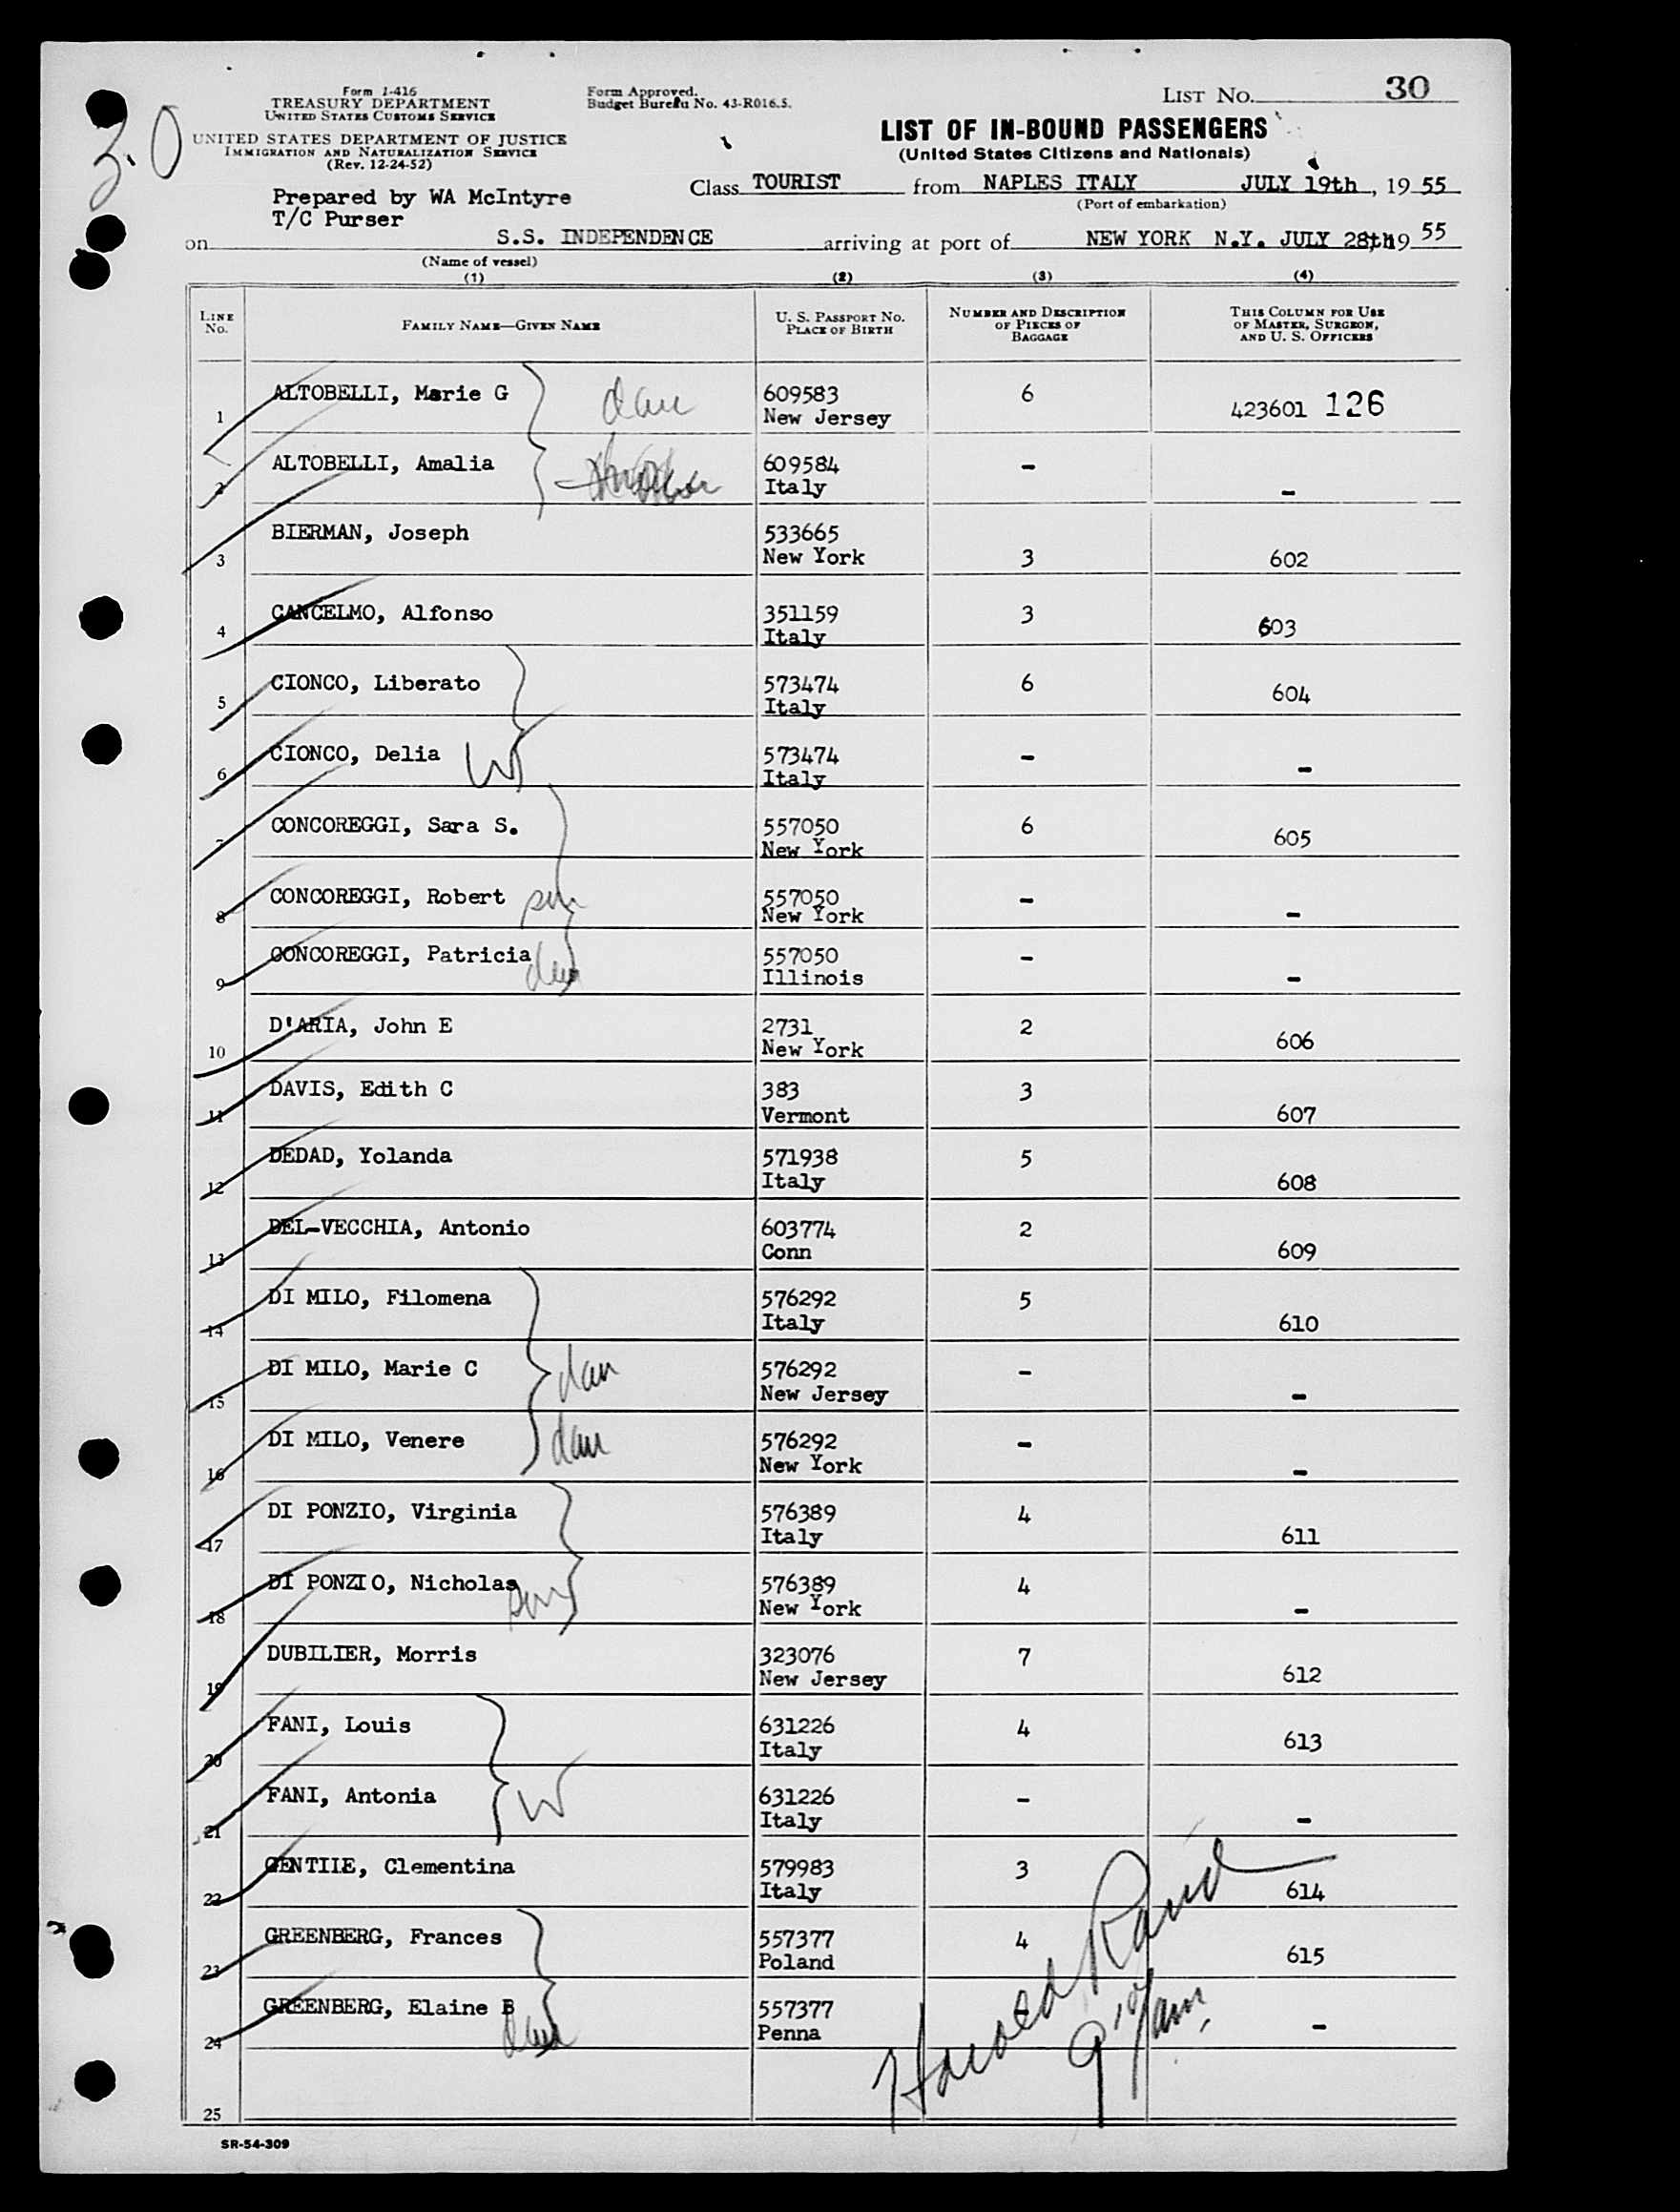 30
Form I-416
TREASURY DEPARTMENT
UNITED STATES CUSTOMS SERVICE
UNITED STATES DEPARTMENT OF JUSTICE
IMMIGRATION AND NATURALIZATION SERVICE
(Rev. 12-24-52)
Form Approved.
Budget Bureau No. 43-R016.5.
LIST NO. 30
LIST OF IN-BOUND PASSENGERS
(United States Citizens and Nationals)
Prepared by WA McIntyre
T/C Purser
Class TOURIST from NAPLES ITALY JULY 19th, 19 55
(Port of embarkation)
on S.S. INDEPENDENCE arriving at port of NEW YORK N.Y. JULY 28th, 19 55
(Name of vessel)
(1) (2) (3) (4)
LINE NO. FAMILY NAME—GIVEN NAME U. S. PASSPORT NO. PLACE OF BIRTH NUMBER AND DESCRIPTION OF PIECES OF BAGGAGE THIS COLUMN FOR USE OF MASTER, SURGEON, AND U. S. OFFICERS
1 ALTOBELLI, Marie G dau 609583 New Jersey 6 423601 126
2 ALTOBELLI, Amalia 609584 Italy - -
3 BIERMAN, Joseph 533665 New York 3 602
4 CANCELMO, Alfonso 351159 Italy 3 603
5 CIONCO, Liberato 573474 Italy 6 604
6 CIONCO, Delia W 573474 Italy - -
7 CONCOREGGI, Sara S. 557050 New York 6 605
8 CONCOREGGI, Robert son 557050 New York - -
9 CONCOREGGI, Patricia dau 557050 Illinois - -
10 D'ARIA, John E 2731 New York 2 606
11 DAVIS, Edith C 383 Vermont 3 607
12 DEDAD, Yolanda 571938 Italy 5 608
13 DEL-VECCHIA, Antonio 603774 Conn 2 609
14 DI MILO, Filomena 576292 Italy 5 610
15 DI MILO, Marie C dau 576292 New Jersey - -
16 DI MILO, Venere dau 576292 New York - -
17 DI PONZIO, Virginia 576389 Italy 4 611
18 DI PONZIO, Nicholas son 576389 New York 4 -
19 DUBILIER, Morris 323076 New Jersey 7 612
20 FANI, Louis 631226 Italy 4 613
21 FANI, Antonia W 631226 Italy - -
22 GENTILE, Clementina 579983 Italy 3 614
23 GREENBERG, Frances 557377 Poland 4 615
24 GREENBERG, Elaine B dau 557377 Penna - -
Harold Rand
25
SR-54-309